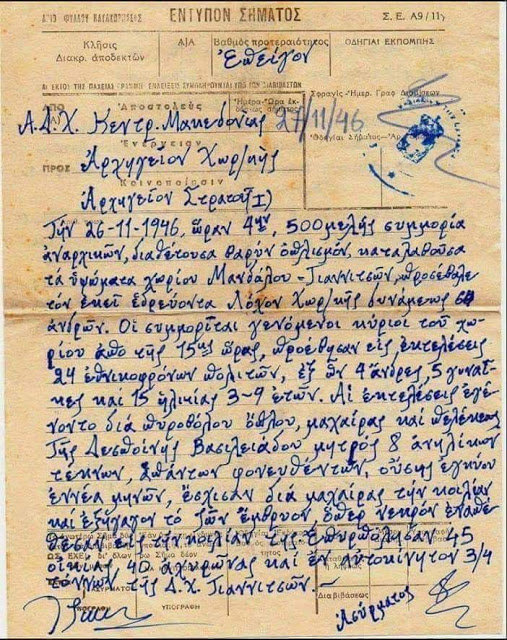 ΑΠΟ ΦΥΛΛΟΥ ΚΑΤΑΧΩΡΗΣΕΩΣ ΕΝΤΥΠΟΝ ΣΗΜΑΤΟΣ Σ. Ε. Α9/11γ
Κλῆσις Διακρ. ἀποδεκτῶν Α|Α Βαθμός προτεραιότητος ΟΔΗΓΙΑΙ ΕΚΠΟΜΠΗΣ
Ἐπεῖγον
ΑΠΟ Ἀποστολεύς
Α.Δ.Χ. Κεντρ. Μακεδονίας 27/11/46
Ἐνέργειαν
ΠΡΟΣ Ἀρχηγεῖον Χωρ/κῆς
Κοινοποίησιν
Ἀρχηγεῖον Στρατοῦ (Ι)
Τήν 26-11-1946, ὥραν 4ην, 500μελής συμμορία
ἀναρχικῶν, διαθέτουσα βαρύν ὁπλισμόν, καταλαβοῦσα
τά ὑψώματα χωρίου Μανδάλου - Γιαννιτσῶν, προσέβαλε
τόν ἐκεῖ ἑδρεύοντα Λόχον Χωρ/κῆς δυνάμεως
ἀνδρῶν. Οἱ συμμορῖται γενόμενοι κύριοι τοῦ χω-
ρίου ἀπό τῆς 15ης ὥρας, προέβησαν εἰς ἐκτελέσεις
24 ἐθνικοφρόνων πολιτῶν, ἐξ ὧν 4 ἄνδρες, 5 γυναῖ-
κες καί 15 ἡλικίας 3-9 ἐτῶν. Αἱ ἐκτελέσεις ἐγέ-
νοντο διά πυροβόλου ὅπλου, μαχαίρας καί πελέκεως
Τῆς Δεσποίνης Βασιλειάδου μητρός 8 ἀνηλίκων
τέκνων, ἁπάντων φονευθέντων, οὔσης ἐγκύου
ἐννέα μηνῶν, ἔσχισαν διά μαχαίρας τήν κοιλίαν
καί ἐξήγαγον τό ζῶν ἔμβρυον ὅπερ νεκρόν ἐναπέ-
θεσαν εἰς τήν κοιλίαν της Ἐπυρπόλησαν 45
οἰκίας, 40 ἀχυρῶνας καί ἕν αὐτοκίνητον 3/4
τόννων τῆς Δ.Χ. Γιαννιτσῶν.-
ΥΠΟΓΡΑΦΗ ΥΠΟΓΡΑΦΗ Διαβιβάσεως
Ἀσύρματος